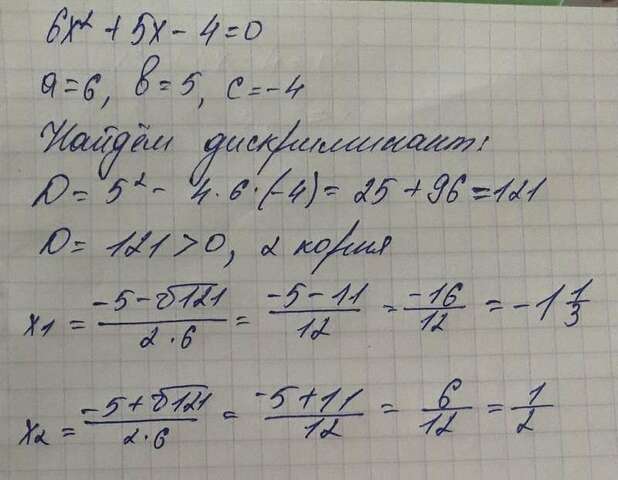 6x² + 5x - 4 = 0
a = 6, в = 5, c = -4
Найдём дискриминант:
D = 5² - 4 · 6 · (-4) = 25 + 96 = 121
D = 121 > 0, 2 корня
x₁ = (-5 - √121)/(2 · 6) = (-5 - 11)/12 = -16/12 = -1 1/3
x₂ = (-5 + √121)/(2 · 6) = (-5 + 11)/12 = 6/12 = 1/2